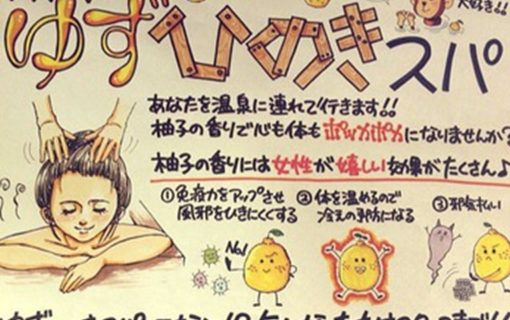 大好き!!
ゆずひのきスパ
あなたを温泉に連れて行きます!!
柚子の香りで心も体もポッカポカになりませんか?
柚子の香りには女性が嬉しい効果がたくさん♪
①免疫力をアップさせ
風邪をひきにくくする
②体を温めるので
冷えの予防になる
③邪気払い
No.1